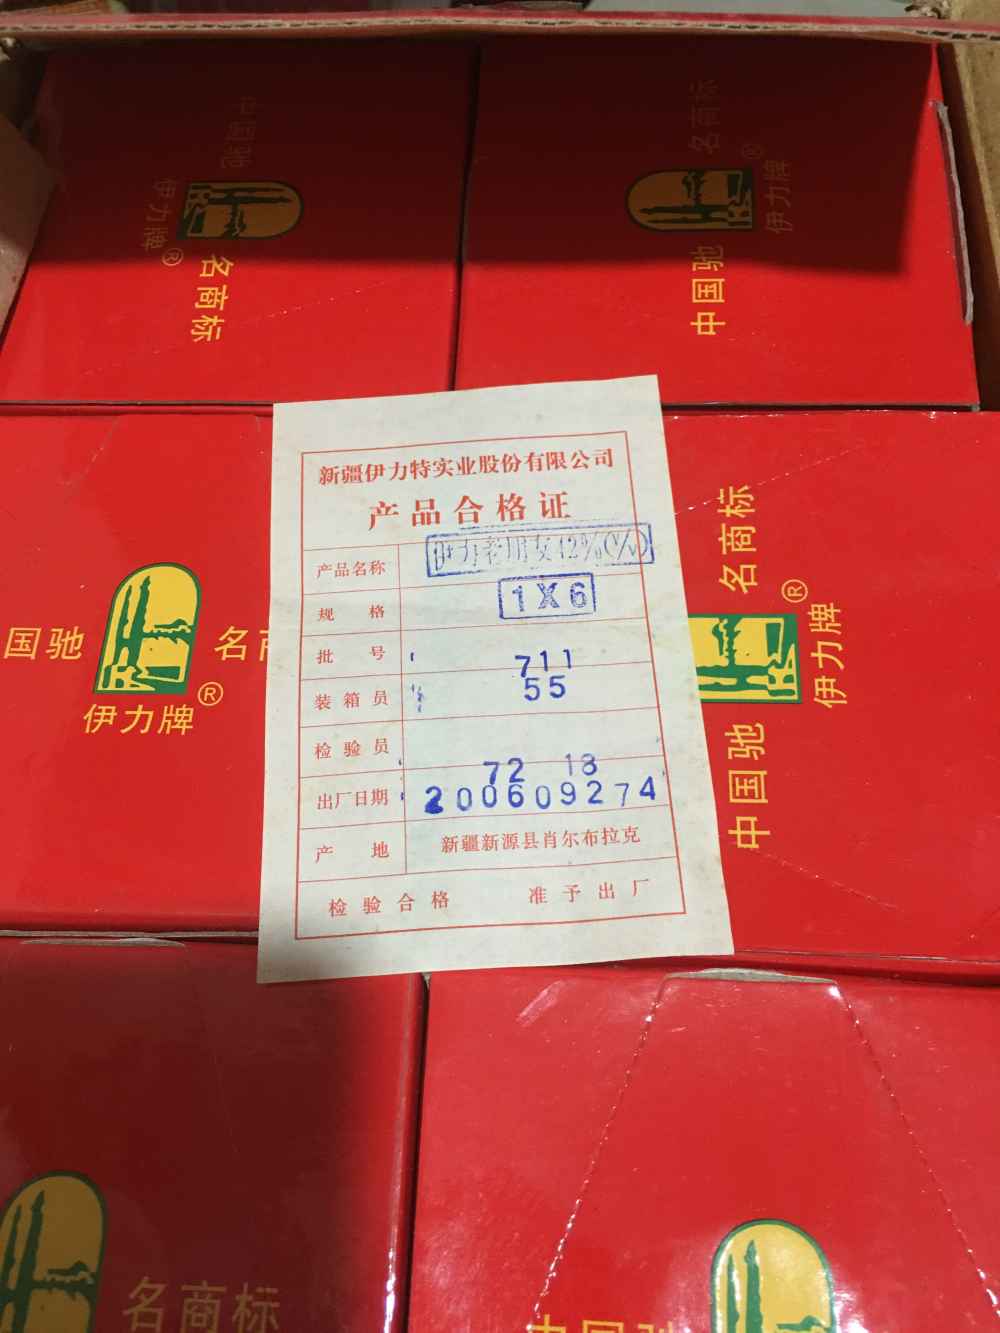 中国驰
名商标
伊力牌®
中国驰
名商标
伊力牌®
新疆伊力特实业股份有限公司
产品合格证
产品名称 伊力老朋友42%(V/V)
规格 1X6
批号 711
装箱员 55
检验员 72 18
出厂日期 200609274
产地 新疆新源县肖尔布拉克
检验合格 准予出厂
国驰
名商
伊力牌®
中国驰
名商标
伊力牌®
名商标
中国驰